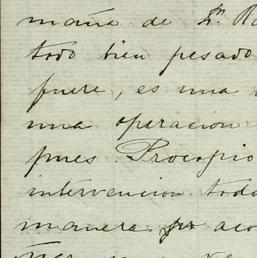 maña de Dn
todo bien pesado
fuere, es una
una operacion
pues Procopio
intervencion toda
manera pr aco